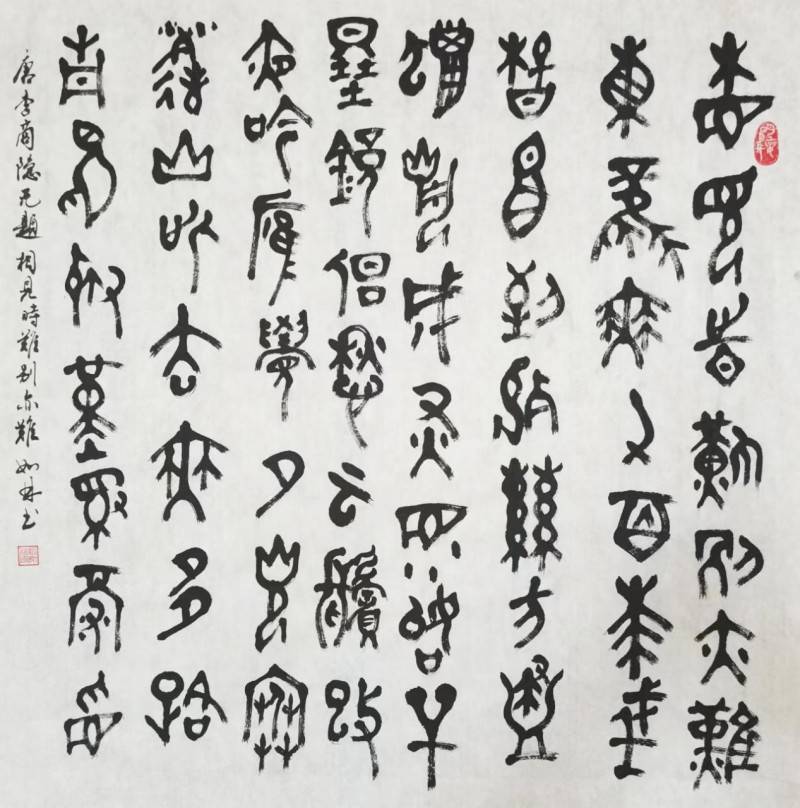 相見時難別亦難
東風無力百花殘
春蠶到死絲方盡
蠟炬成灰淚始乾
曉鏡但愁云鬢改
夜吟應覺月光寒
蓬山此去無多路
青鳥殷勤為探看
唐李商隐无题相見時難别亦難 如林书